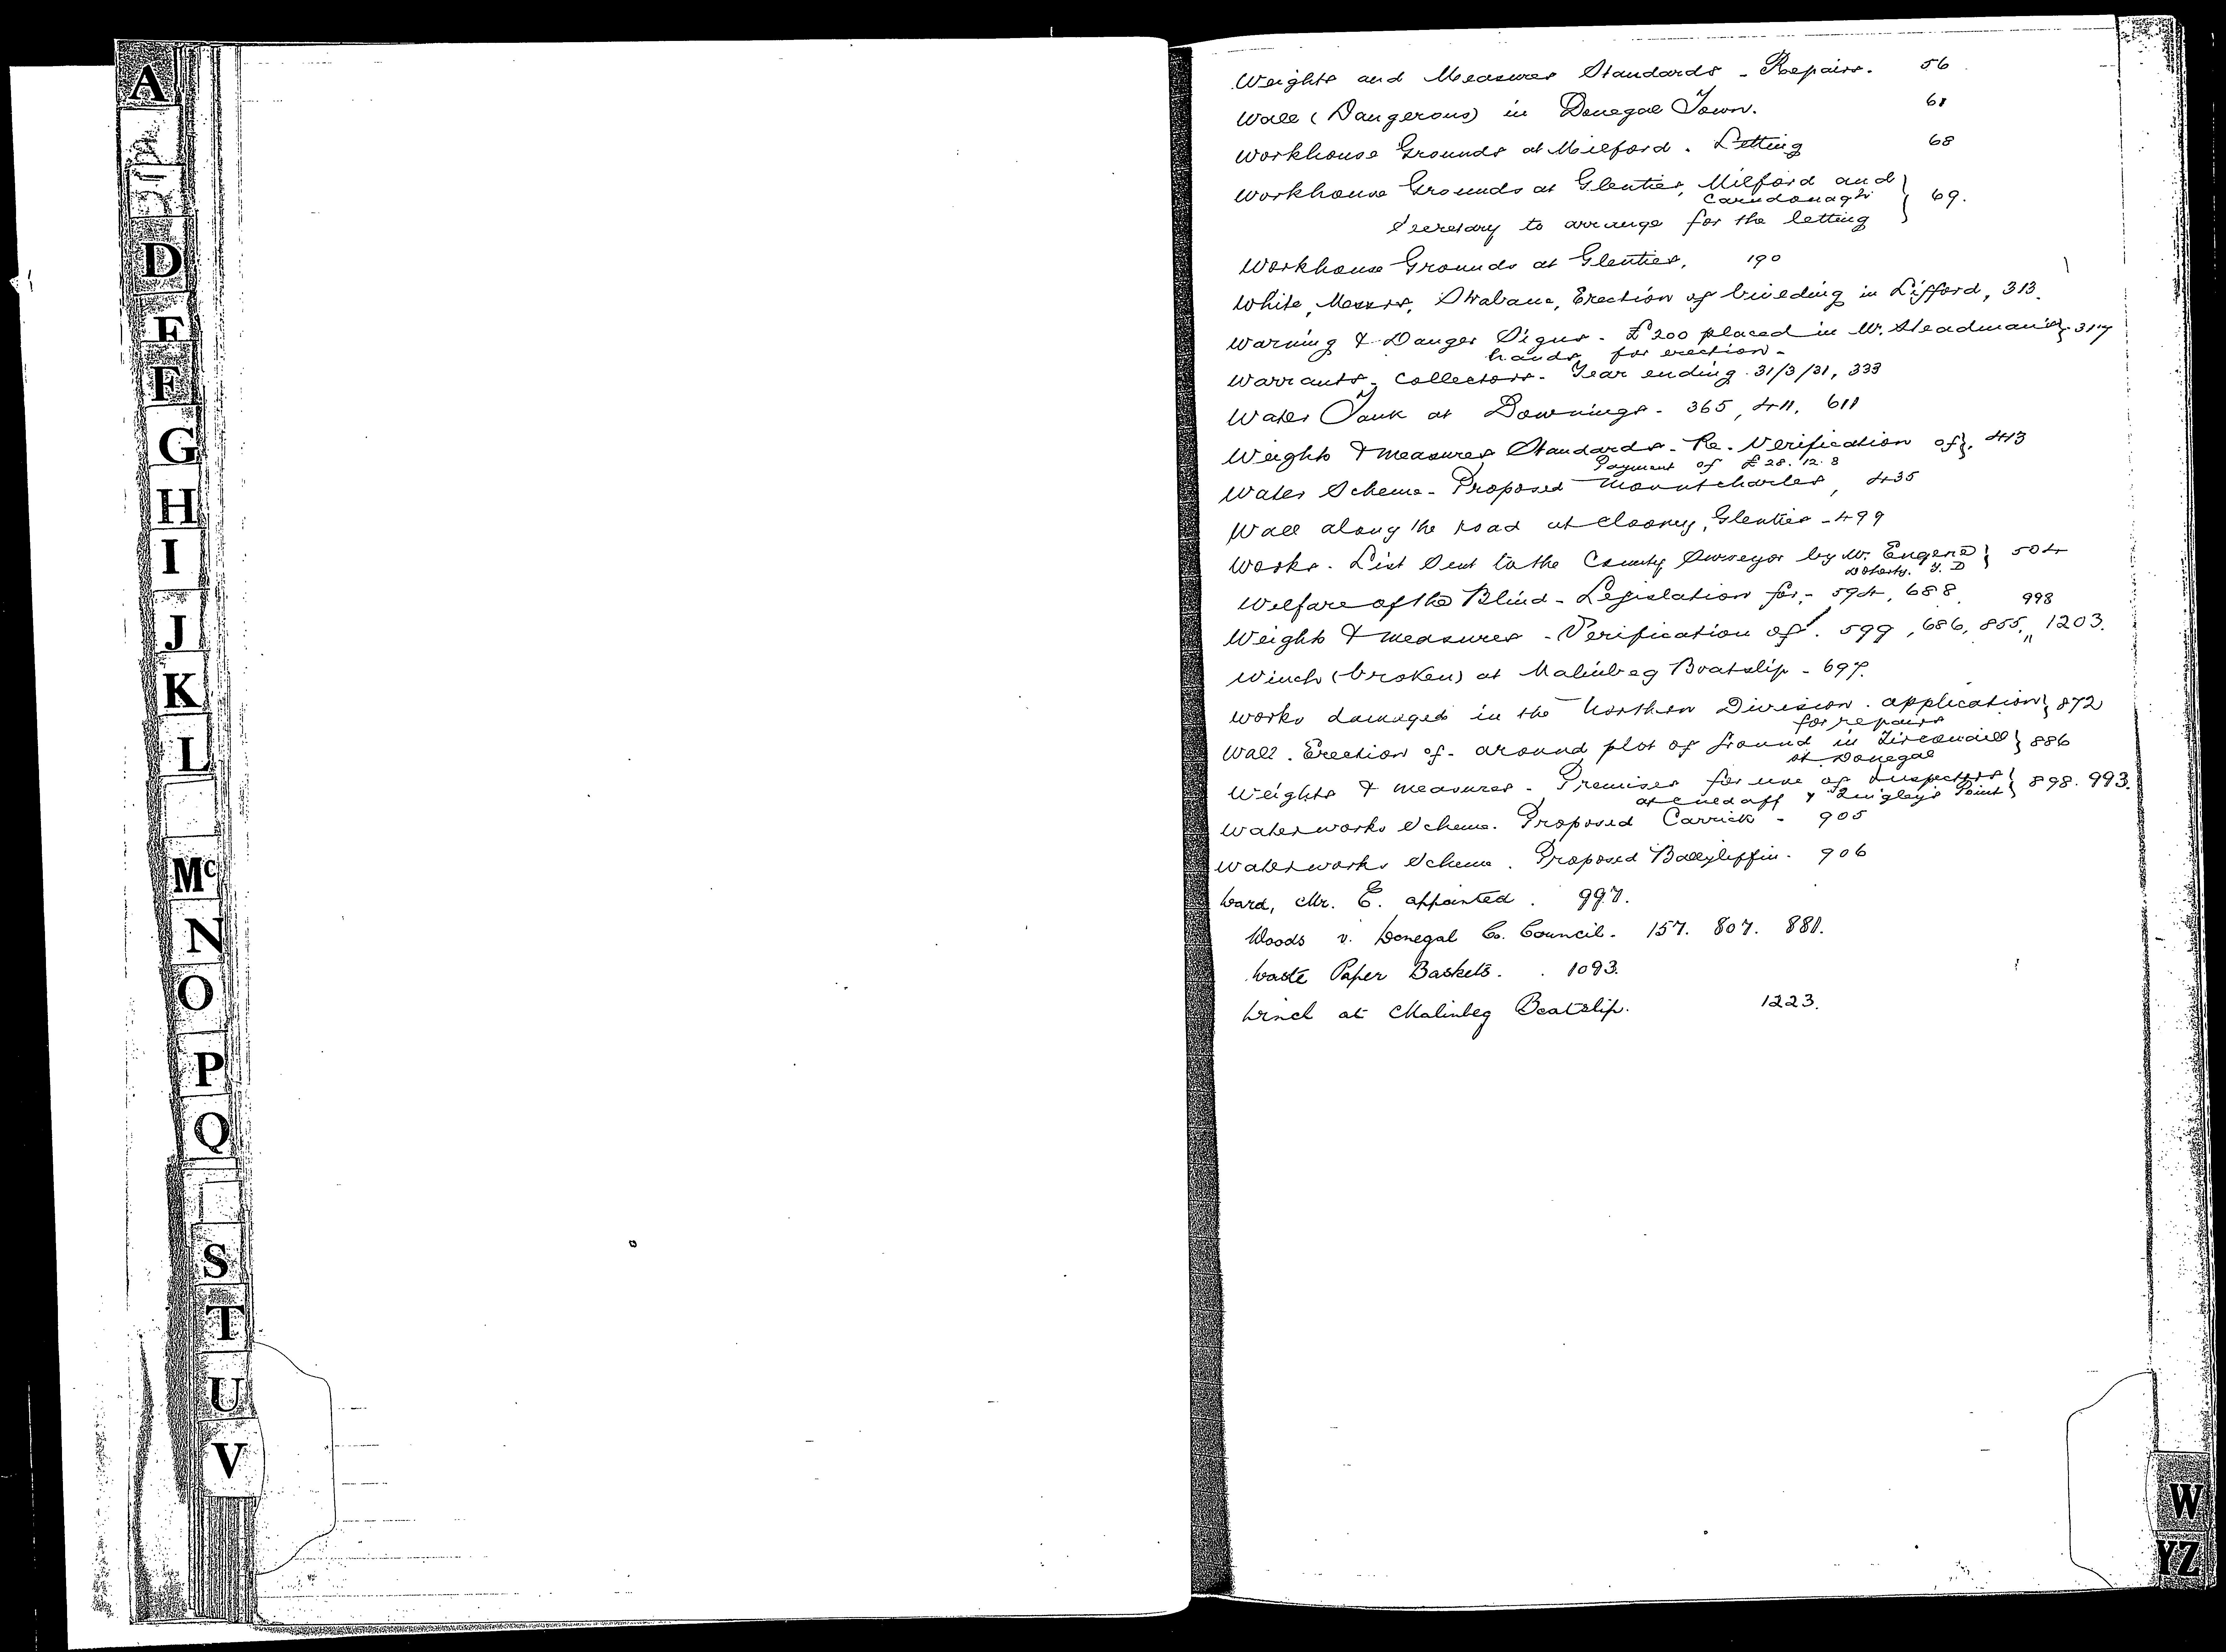 A
D
E
F
G
H
I
J
K
L
Mc
N
O
P
Q
S
T
U
V
Weights and Measures Standards - Repairs. 56
Wall (Dangerous) in Donegal Town. 61
Workhouse Grounds at Milford. Letting 68
Workhouse Grounds at Glenties, Milford and
Carndonagh } 69.
Secretary to arrange for the letting
Workhouse Grounds at Glenties, 190
White, Messrs, Strabane, Erection of building in Lifford, 313.
Warning & Danger Signs - £200 placed in Mr. Steadman's } 317
hands for erection -
Warrants - Collectors - Year ending 31/3/31, 333
Water Tank at Downings - 365, 411, 611
Weights & measures Standards - Re-Verification of }. 413
Payment of £28.12.8
Water Scheme - Proposed Mountcharles, 435
Wall along the road at Clooney, Glenties - 499
Works - List Sent to the County Surveyor by Mr. Eugene } 504
Doherty. T.D
Welfare of the Blind - Legislation for - 594, 688.
998
Weights & measures - Verification of. 599, 686, 855, " 1203.
Winch (broken) at Malinbeg Boatslip - 697.
Works damaged in the Northern Division. application } 872
for repairs
Wall. Erection of - around plot of ground in Tirconaill } 886
St. Donegal
Weights & measures - Premises for use of Inspectors } 898. 993.
at Culdaff & Quigley's Point
Waterworks Scheme. Proposed Carrick - 905
Waterworks Scheme. Proposed Ballyliffin - 906
Ward, Mr. E. appointed. 997.
Woods v. Donegal Co. Council. 157. 807. 881.
Waste Paper Baskets. . 1093.
Winch at Malinbeg Boatslip. 1223.
W
YZ